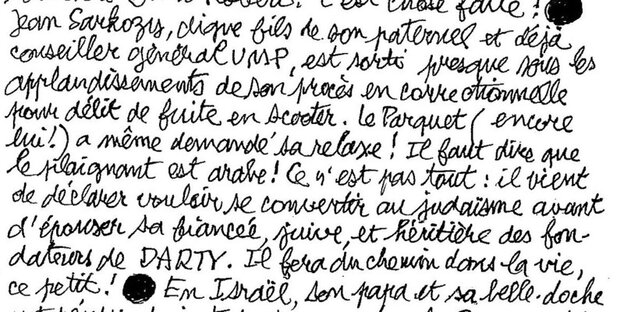 c'est chose faite !
Jean Sarkozis, digne fils de son paternel et déjà
conseiller général UMP, est sorti presque sous les
applaudissements de son procès en correctionnelle
pour délit de fuite en scooter. Le Parquet (encore
lui !) a même demandé sa relaxe ! Il faut dire que
le plaignant est arabe ! Ce n'est pas tout : il vient
de déclarer vouloir se convertir au judaïsme avant
d'épouser sa fiancée, juive, et héritière des fon-
dateurs de DARTY. Il fera du chemin dans la vie,
ce petit ! En Israël, son papa et sa belle-doche